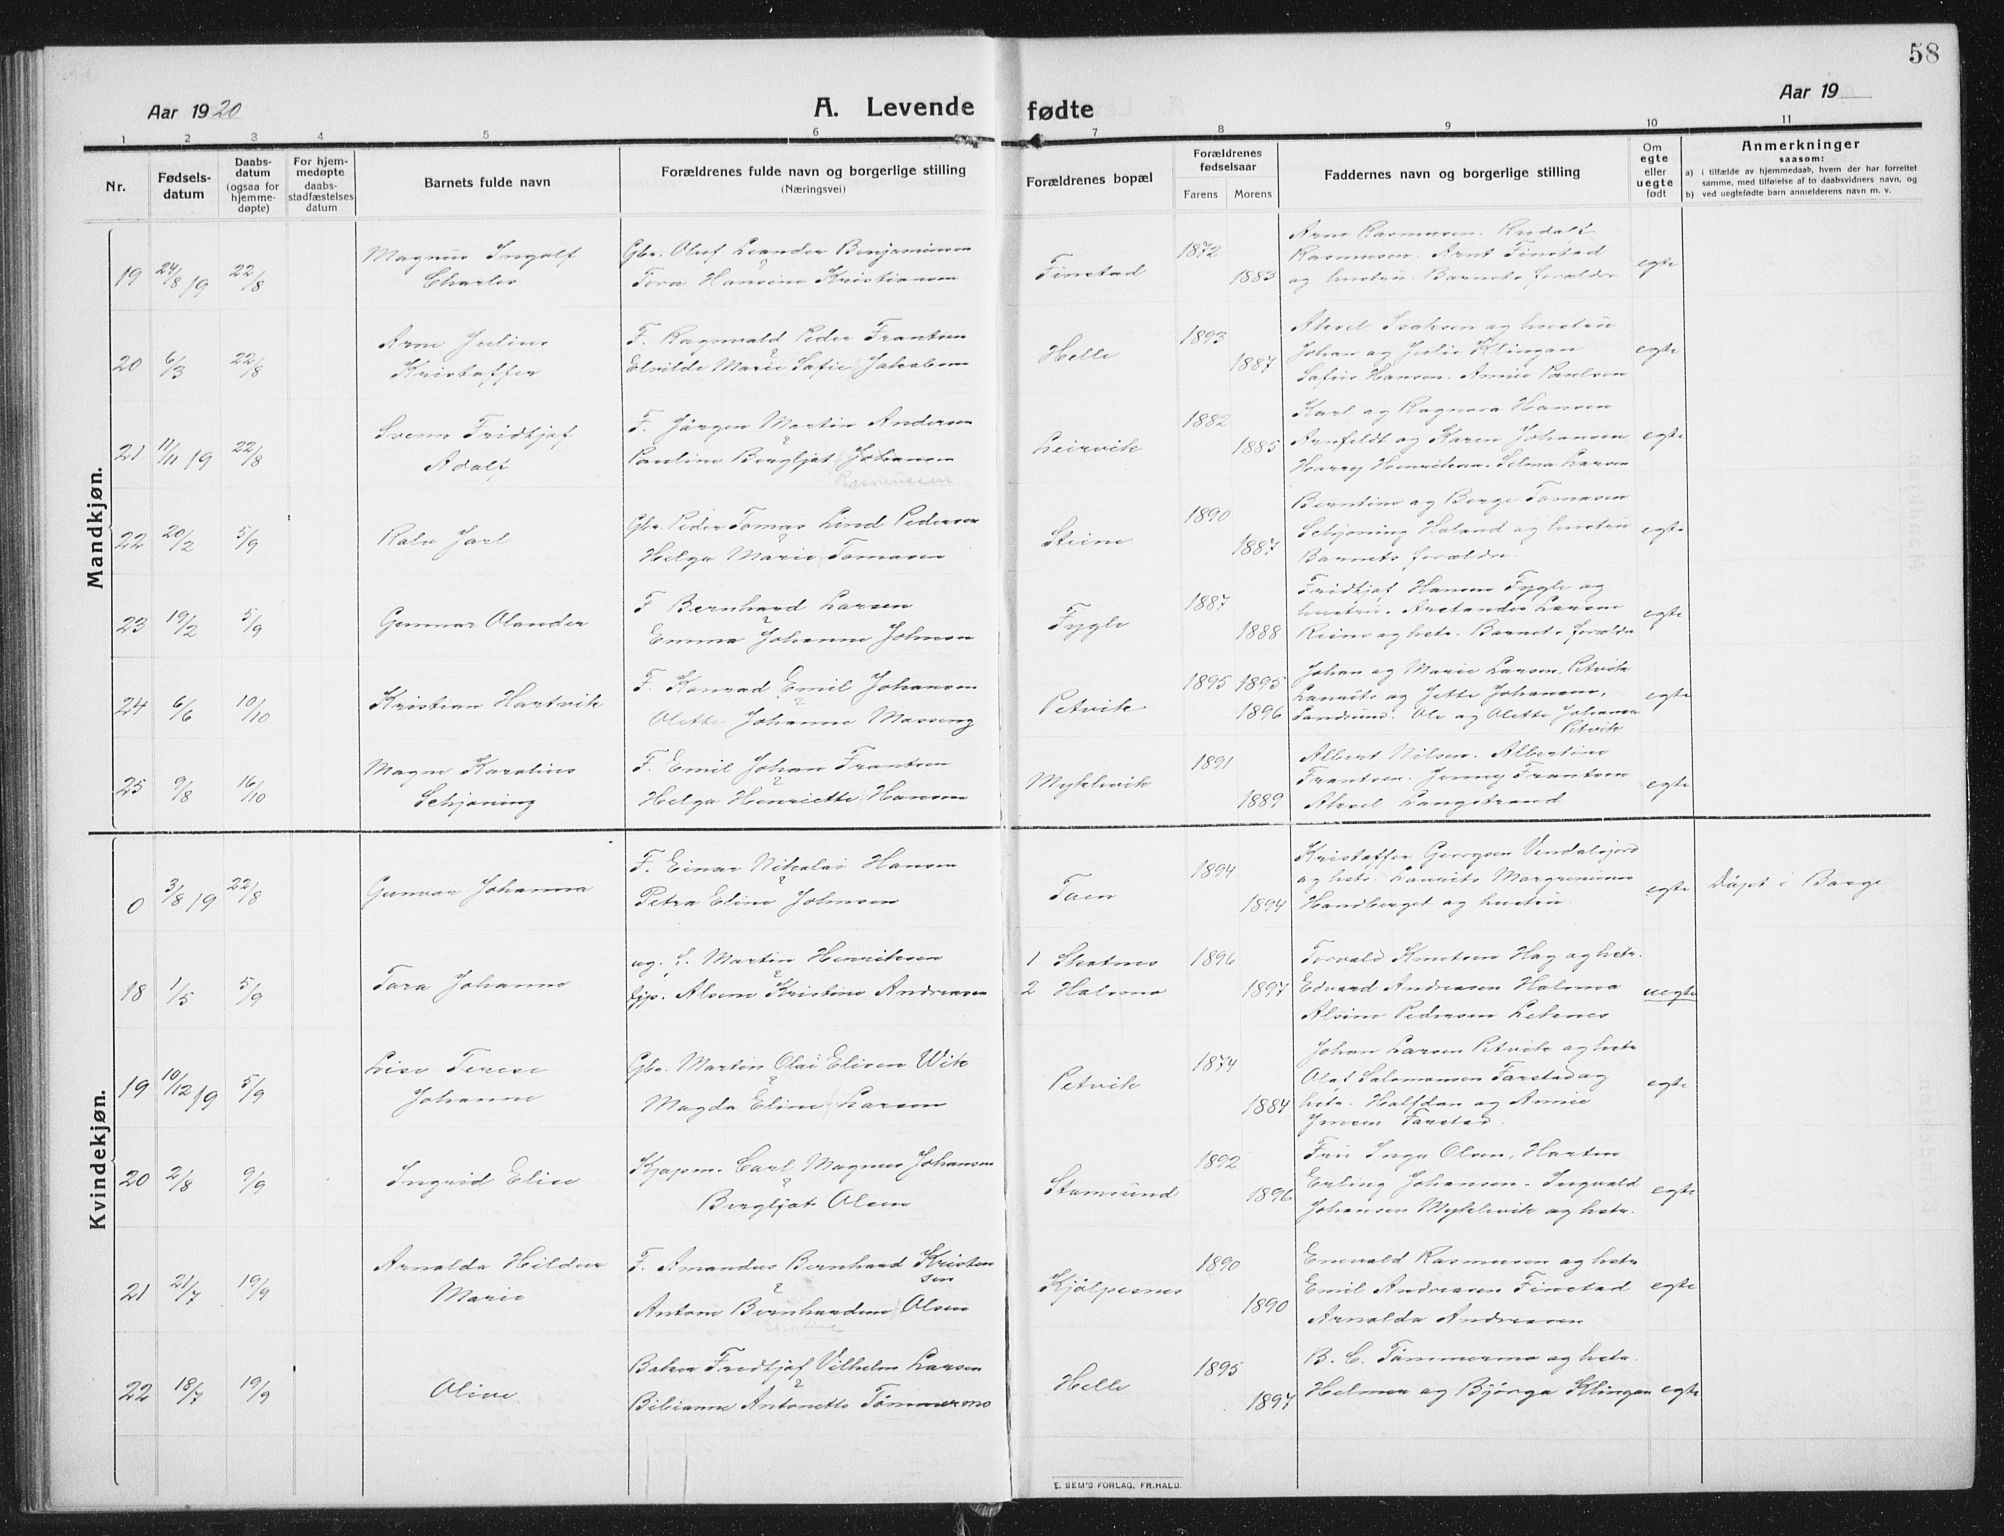 58
Aar 1920
A. Levende fødte
Aar 19
1 2 3 4 5 6 7 8 9 10 11
Nr.
Fødsels-
datum
Daabs-
datum
(ogsaa for
hjemme-
døpte)
For hjem-
medøpte
daabs-
stadfæstelses
datum
Barnets fulde navn
Forældrenes fulde navn og borgerlige stilling
(Næringsvei)
Forældrenes bopæl
Forældrenes
fødselsaar
Farens Morens
Faddernes navn og borgerlige stilling
Om
egte
eller
uegte
født
Anmerkninger
saasom:
a) i tilfælde av hjemmedaab, hvem der har forrettet
samme, med tilføielse af to daabsvidners navn, og
b) ved uegtefødte barn anmelderens navn m. v.
Mandkjøn.
19 24/8 19 22/8
Magnus Ingolf
Charles
Gbr. Oluf Leander Benjaminsen
Tora Hansine Kristiansen
Finstad
1872
1883
Arne Rasmusen. Rudolf
Rasmusen. Arnt Finstad
og hustru. Barnets forældre
egte
20 6/3 22/8
Arne Julius
Kristoffer
F. Ragnvald Peder Frantsen
Elvilde Marie Sofie Jakobsen
Helle
1893
1887
Aksel Isaksen og hustru
Johan og Julie Klingan
Sofus Hansen. Annie Paulsen
egte
21 11/11 19 22/8
Svenn Fridtjof
Adolf
F. Jørgen Martin Andersen
Pauline Bergljot Johansen
Rasmussen
Leirvik
1882
1885
Karl og Ragnora Hansen
Arnfeldt og Karen Johansen
Harry Henriksen. Selma Larsen
egte
22 20/2 5/9
Rolv Jarl
Gbr. Peder Tomas Lind Pedersen
Helga Marie Tomasen
Steine
1890
1887
Berntine og Berge Tomasen
Schjøning Holand og hustru
Barnets forældre.
egte
23 19/2 5/9
Gunnar Olander
F. Bernhard Larsen
Emma Johanne Johnsen
Fygle
1887
1888
Fridtjof Hansen Fygle og
hustru. Larsen
Reine og hstr. Barnets forældre
egte
24 6/6 10/10
Kristian Hartvik
F. Konrad Emil Johansen
Olette Johanne Masseng
Petvik
1895 1895
1896
Johan og Marie Larsen, Petvik
Laurits og Jette Johansen,
Sandsund. Ole og Olette Johansen
Petvik
egte
25 9/8 16/10
Magne Karolius
Schjøning
F. Emil Johan Frantsen
Helga Henriette Hansen
Myklevik
1891
1889
Albert Nilsen. Albertine
Frantsen. Jenny Frantsen
Aksel Langstrand
egte
Kvindekjøn.
0 3/8 19 22/8
Gunvor Johanna
F. Einar Nikolai Hansen
Petra Eline Johnsen
Toen
1894
1894
Kristoffer
og hstr. Laurits
Handberget og hustru.
egte
Døpt i Borge
18 1/5 5/9
Tora Johanne
ug. f. Martin Henriksen
tjp. Alsene Kristine Andreasen
1 Skotnes
2 Halsmo
1896
1897
Torvald Knutsen Hag og hstr.
Edvard Andreasen Halsmo
Alsine Pedersen Leknes
uegte
19 10/12 19 5/9
Lise Terese
Johanne
Gbr. Martin Olai Elisen Wik
Magda Eline Larsen
Petvik
1874
1884
Johan Larsen Petvik og hstr
Olaf Salomonsen Farstad og
hstr. Halfdan og Annie
Jensen Farstad.
egte
20 2/8 9/9
Ingrid Elise
Kjøpm. Carl Magnus Johansen
Bergljot Olsen
Stamsund
1892
1896
Fru Inga Olsen, Harten
Erling Johansen. Ingvald
Johansen Myklevik og hstr.
egte
21 21/7 19/9
Arnolda Hildur
Marie
F. Amandus Bernhard Kristen
sen
Antone Bernhardine Olsen
Berntine
Kjölpesnes
1890
1890
Enevald Rasmusen og hstr
Emil Andreasen Finstad
Arnolda Andreasen
egte
22 18/7 19/9
Olive
Baker Fredtjof Vilhelm Larsen
Bibianne Antonette Tømmermo
Helle
1895
1897
B. C. Tømmermo og hstr.
Helmer og Bjørga Klingan
egte
E. SEM'S FORLAG, FR.HALD.